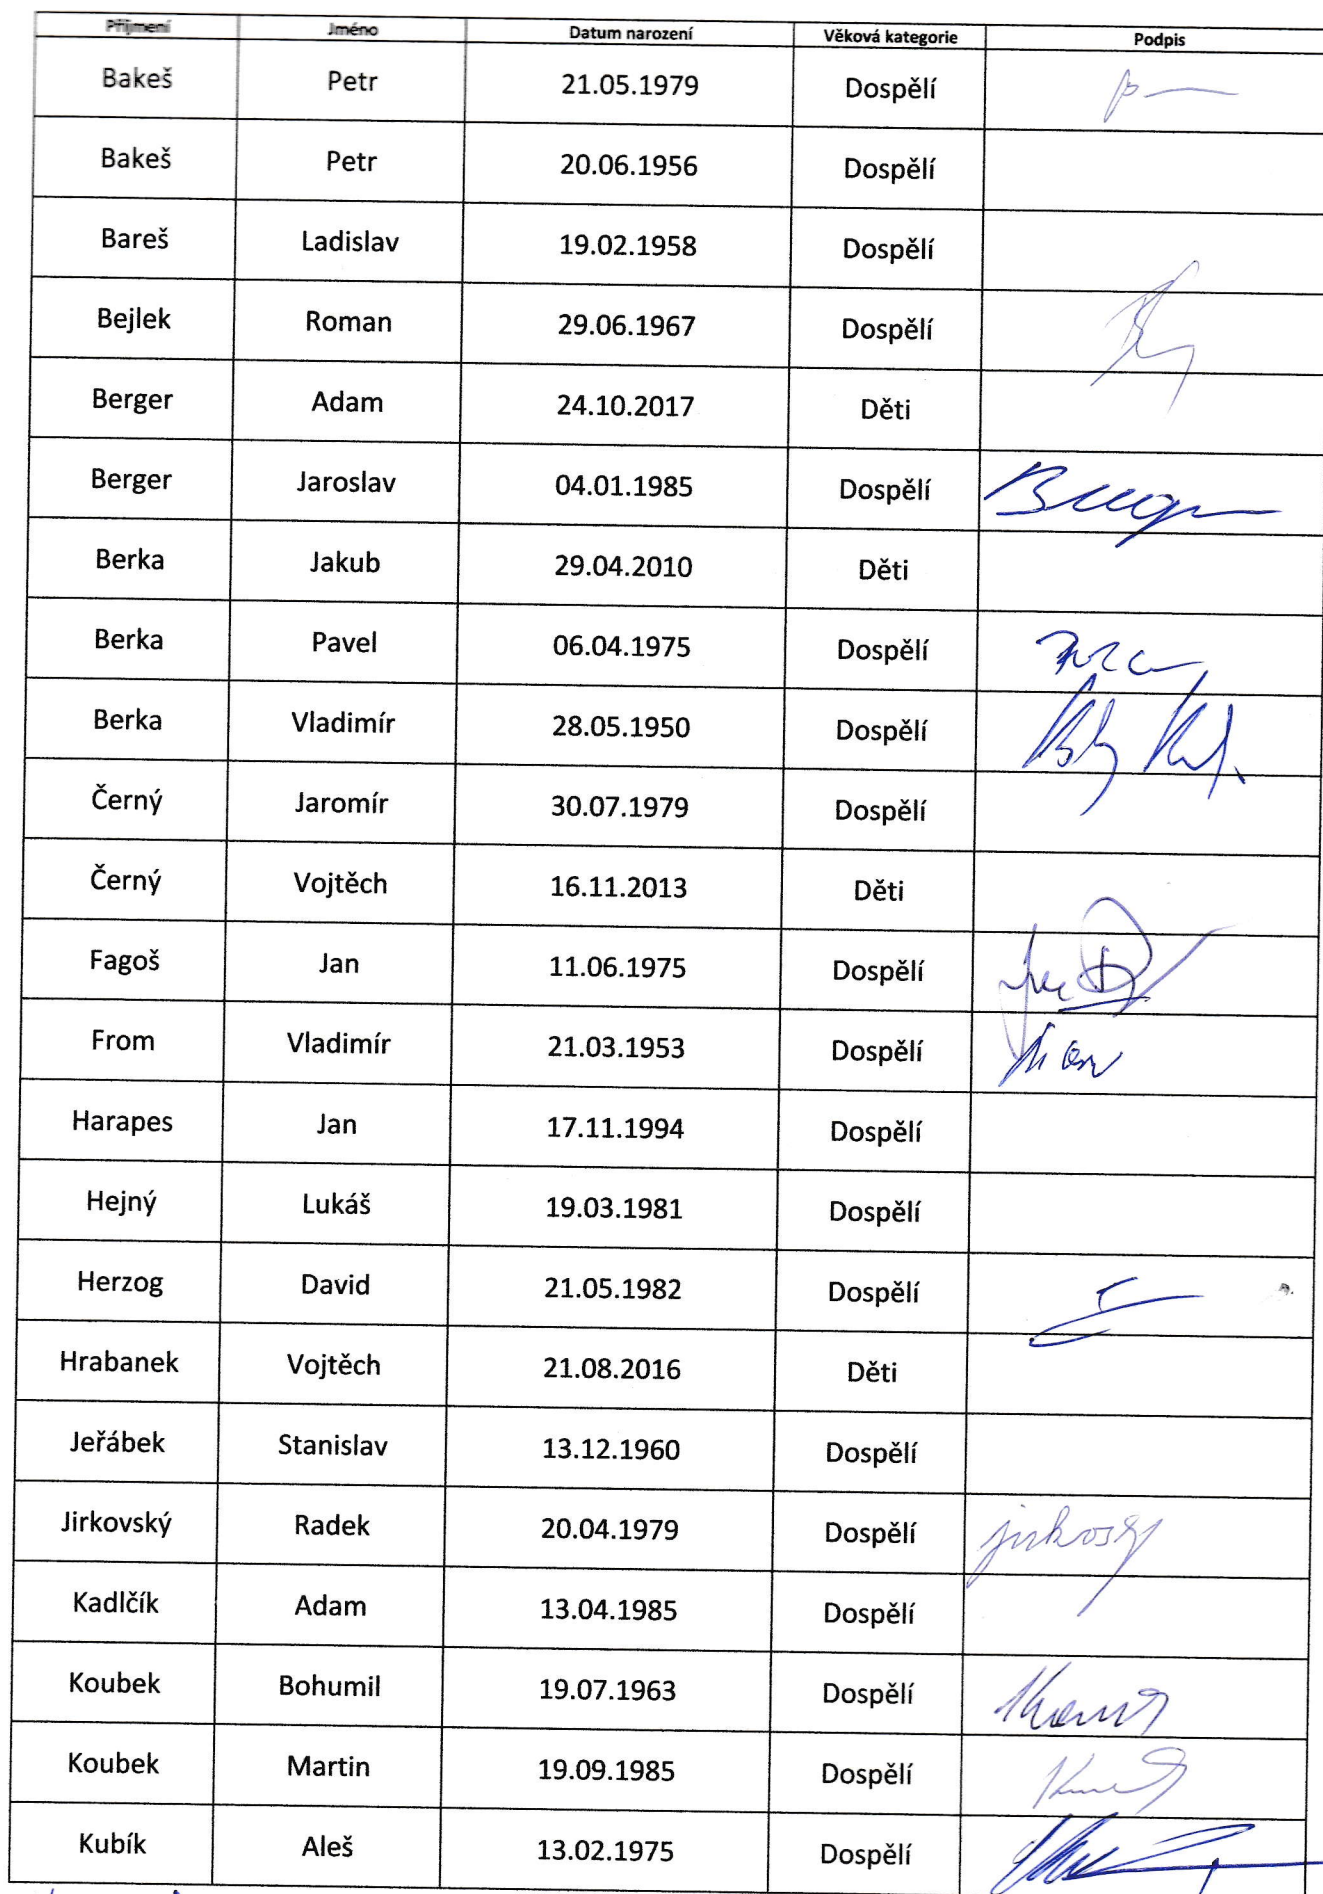 Příjmení Jméno Datum narození Věková kategorie Podpis
Bakeš Petr 21.05.1979 Dospělí
Bakeš Petr 20.06.1956 Dospělí
Bareš Ladislav 19.02.1958 Dospělí
Bejlek Roman 29.06.1967 Dospělí
Berger Adam 24.10.2017 Děti
Berger Jaroslav 04.01.1985 Dospělí
Berka Jakub 29.04.2010 Děti
Berka Pavel 06.04.1975 Dospělí
Berka Vladimír 28.05.1950 Dospělí
Černý Jaromír 30.07.1979 Dospělí
Černý Vojtěch 16.11.2013 Děti
Fagoš Jan 11.06.1975 Dospělí
From Vladimír 21.03.1953 Dospělí
Harapes Jan 17.11.1994 Dospělí
Hejný Lukáš 19.03.1981 Dospělí
Herzog David 21.05.1982 Dospělí
Hrabanek Vojtěch 21.08.2016 Děti
Jeřábek Stanislav 13.12.1960 Dospělí
Jirkovský Radek 20.04.1979 Dospělí
Kadlčík Adam 13.04.1985 Dospělí
Koubek Bohumil 19.07.1963 Dospělí
Koubek Martin 19.09.1985 Dospělí
Kubík Aleš 13.02.1975 Dospělí